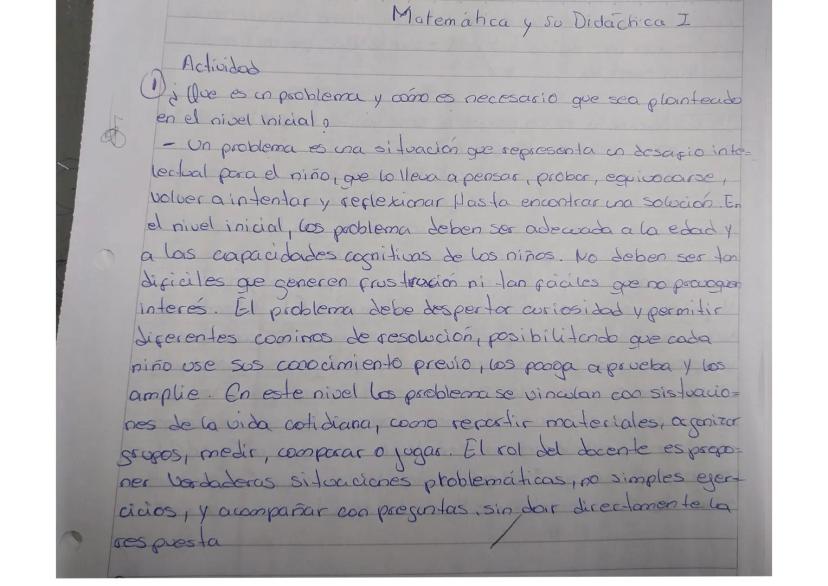 Matemática y su Didáctica I
Actividad
① ¿Que es un problema y cómo es necesario que sea planteado
en el nivel inicial?
- Un problema es una situación que representa un desafio inte=
lectual para el niño, que lo lleva a pensar, probar, equivocarse,
volver a intentar y reflexionar Hasta encontrar una solución. En
el nivel inicial, los problema deben ser adecuada a la edad y
a las capacidades cognitivas de los niños. No deben ser tan
dificiles que generen frustración ni tan fáciles que no provoquen
interés. El problema debe despertar curiosidad y permitir
diferentes caminos de resolución, posibilitando que cada
niño use sus conocimiento previo, los ponga a prueba y los
amplie. En este nivel los problema se vinculan con sistuacio=
nes de la vida cotidiana, como repartir materiales, organizar
grupos, medir, comparar o jugar. El rol del docente es propo=
ner verdaderas situaciones problemáticas, no simples ejer-
cicios, y acompañar con preguntas, sin dar directamente la
respuesta